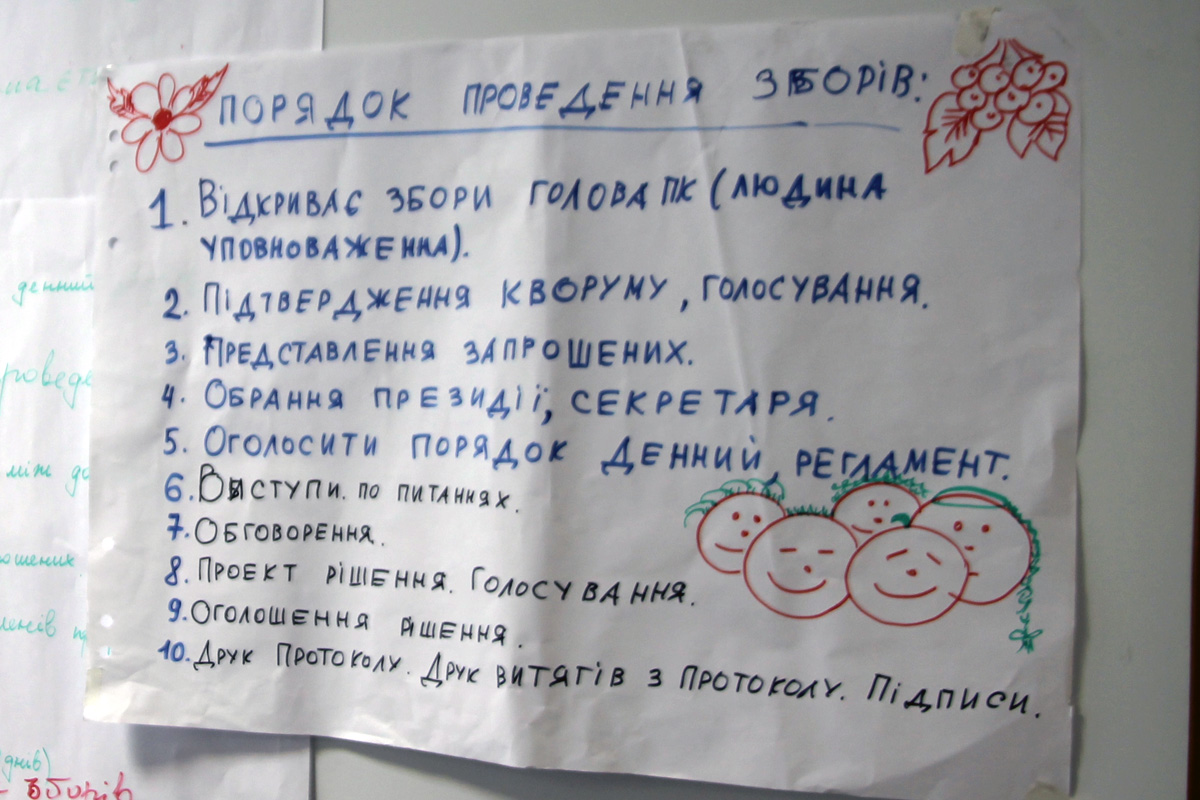 на єти
ПОРЯДОК ПРОВЕДЕННЯ ЗБОРІВ:
1. ВІДКРИВАЄ ЗБОРИ ГОЛОВА ПК (ЛЮДИНА
УПОВНОВАЖЕННА).
денний
2. ПІДТВЕРДЖЕННЯ КВОРУМУ, ГОЛОСУВАННЯ.
3. ПРЕДСТАВЛЕННЯ ЗАПРОШЕНИХ.
роведе
4. ОБРАННЯ ПРЕЗИДІЇ, СЕКРЕТАРЯ.
5. ОГОЛОСИТИ ПОРЯДОК ДЕННИЙ, РЕГЛАМЕНТ.
між до
6. ВИСТУПИ. ПО ПИТАННЯХ.
7. ОБГОВОРЕННЯ.
ошених
8. ПРОЕКТ РІШЕННЯ. ГОЛОСУВАННЯ.
9. ОГОЛОШЕННЯ РІШЕННЯ.
10. ДРУК ПРОТОКОЛУ. ДРУК ВИТЯГІВ З ПРОТОКОЛУ. ПІДПИСИ.
днів)
- зборів